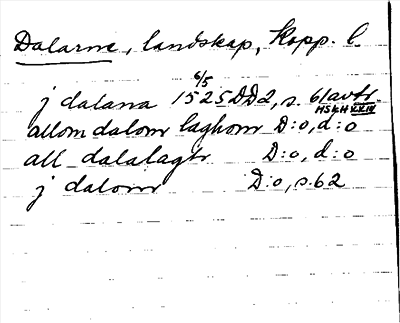 Dalarne, landskap, Kopp. l.
6/5
j dalana 1525 DD2, s. 61 avtr.
HSH XXIV
allom dalom laghom D:o, d:o
all dalalagr D:o, d:o
j dalom D:o, s. 62